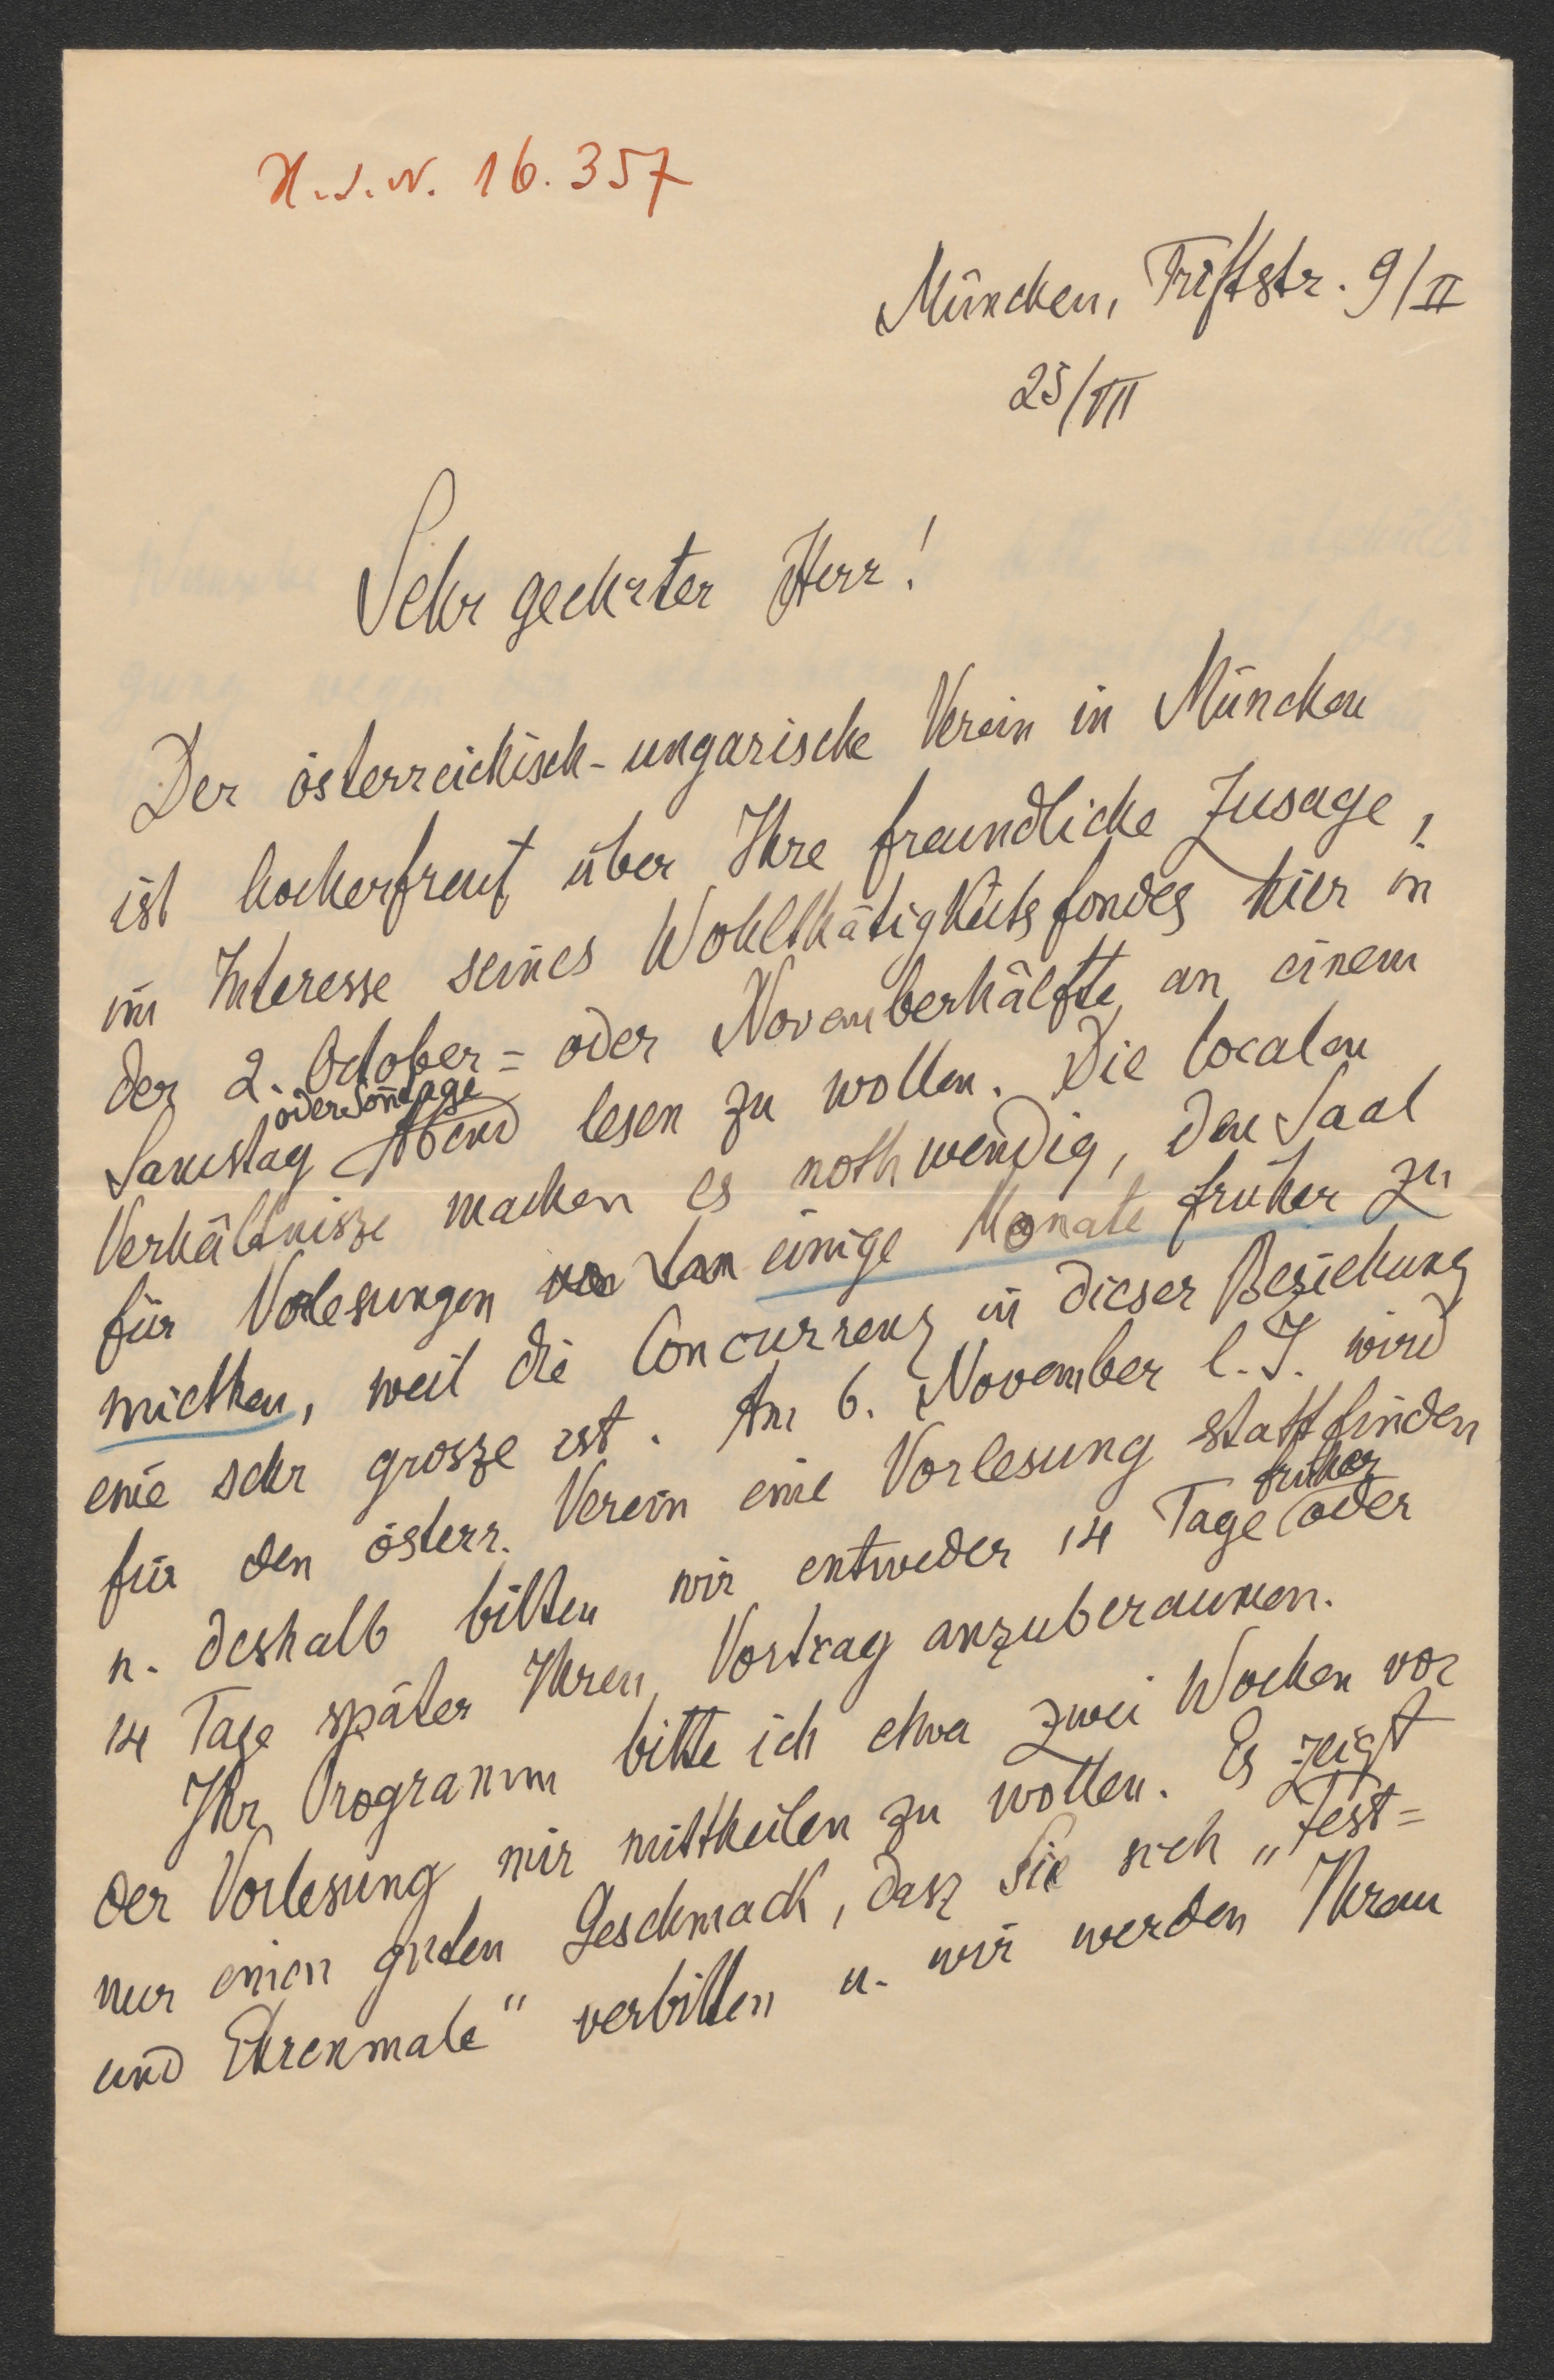 H.I.N. 16.357
München, Triftstr. 9/II
25/VII
Sehr geehrter Herr!
Der österreichisch-ungarische Verein in München
ist hocherfreut über Ihre freundliche Zusage,
im Interesse seines Wohlthätigkeitsfondes hier in
der 2. October= oder Novemberhälfte an einem
oder Sonntage
Samstag Abend lesen zu wollen. Die localen
Verhältnisze machen es nothwendig, den Saal
für Vorlesungen einige Monate früher zu
miethen, weil die Concurrenz in dieser Beziehung
eine sehr grosze ist. Am 6. November l. J. wird
für den österr. Verein eine Vorlesung stattfinden
früher
u. deshalb bitten wir entweder 14 Tage oder
14 Tage später Ihren Vortrag anzuberaumen.
Ihr Programm bitte ich etwa zwei Wochen vor
der Vorlesung mir mittheilen zu wollen. Es zeigt
nur einen guten Geschmack, dasz Sie sich „Fest=
und Ehrenmale" verbitten u. wir werden Ihren